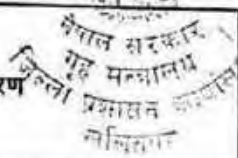 नेपाल सरकार
गृह मन्त्रालय
जिल्ला प्रशासन कार्यालय
ललितपुर
रण